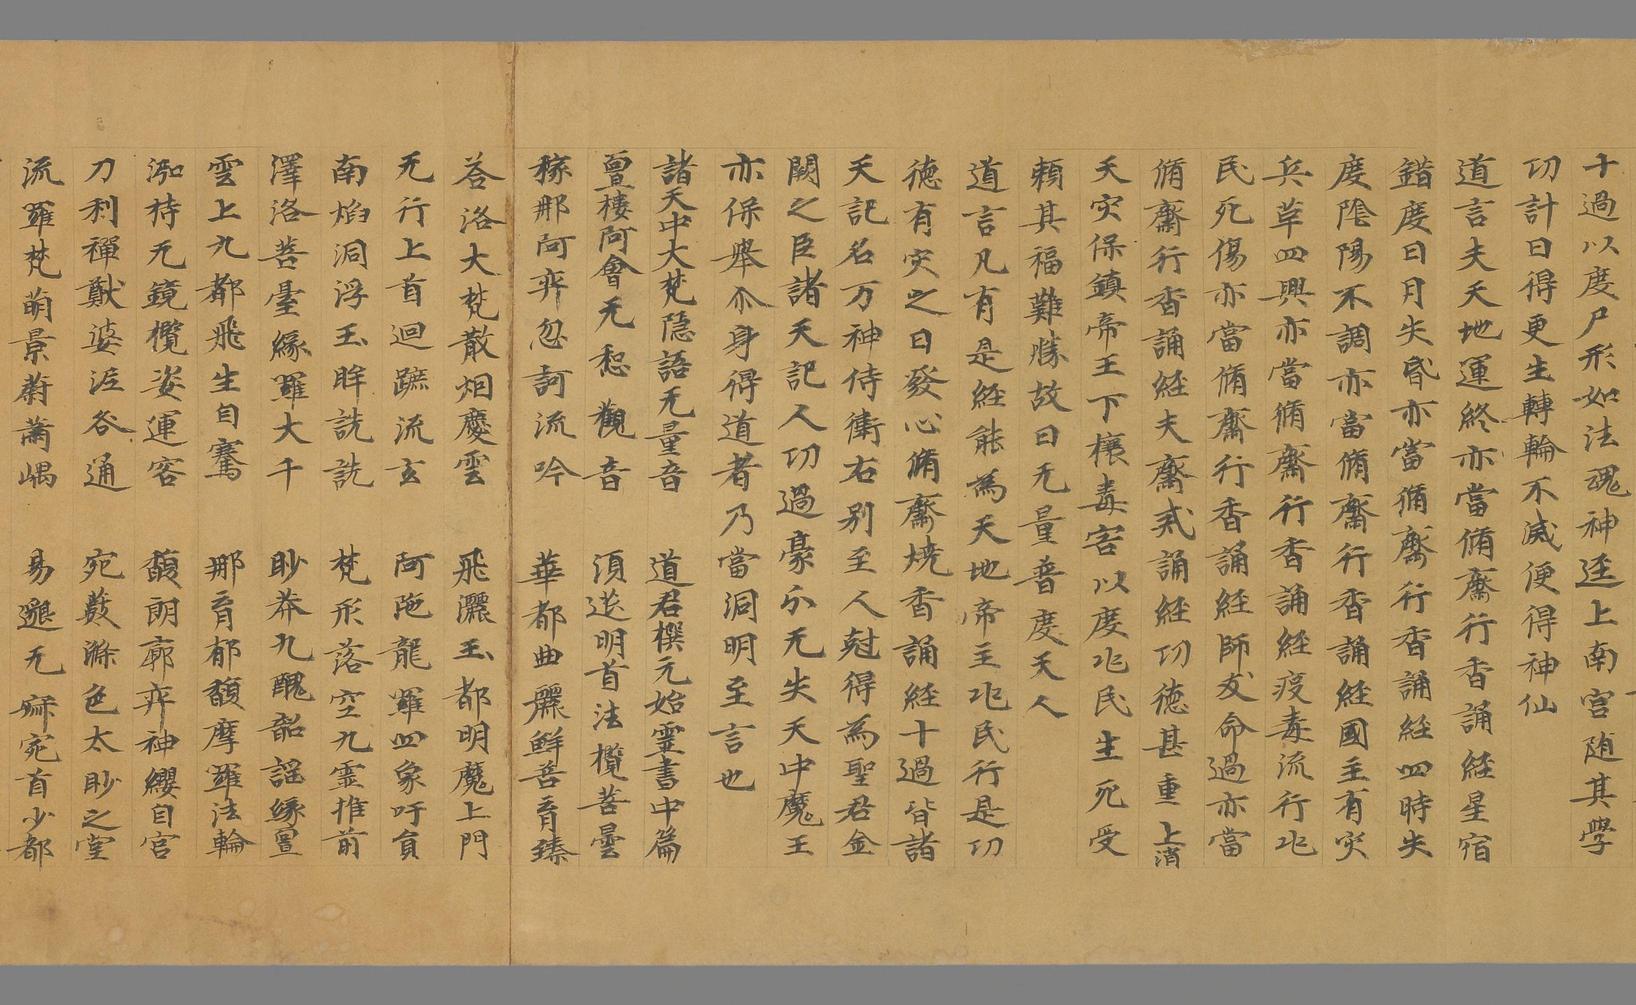 十過以度尸形如法魂神迳上南宫随其學
功計日得更生轉輪不滅便得神仙
道言夫天地運終亦當脩齋行香誦経星宿
錯度日月失昏亦當脩齋行香誦経四時失
度陰陽不調亦當脩齋行香誦経國主有灾
兵革四興亦當脩齋行香誦経疫毒流行兆
民死傷亦當脩齋行香誦経師友命過亦當
脩齋行香誦経夫齋戒誦経功徳甚重上消
天灾保鎮帝王下禳毒害以度兆民生死受
頼其福難勝故曰无量普度天人
道言凡有是経能為天地帝主兆民行是功
徳有灾之日發心脩齋燒香誦経十過皆諸
天記名万神侍衛右别至人尅得為聖君金
闕之臣諸天記人功過豪分无失天中魔王
亦保舉尒身得道者乃當洞明至言也
諸天中大梵隱語无量音 道君撰元始靈書中篇
亶樓阿會无惒觀音 須莚明首法欖菩曇
稼那阿弈忽訶流吟 華都曲麗鮮菩育臻
荅洛大梵散烟慶雲 飛灑玉都明魔上門
无行上首迴蹠流玄 阿陁龍羅四象吁員
南焰洞浮玉眸詵詵 梵形落空九霊推前
澤洛菩臺緣羅大千 眇莽九醜韶謡緣亶
雲上九都飛生自騫 那育郁馥摩羅法輪
泓持无鏡欖姿運容 馥朗廓弈神纓自宫
刀利禪猷婆泜咎通 宛藪滌色太眇之堂
流羅梵萌景蔚蕭嵎 易邈无寂宛首少都